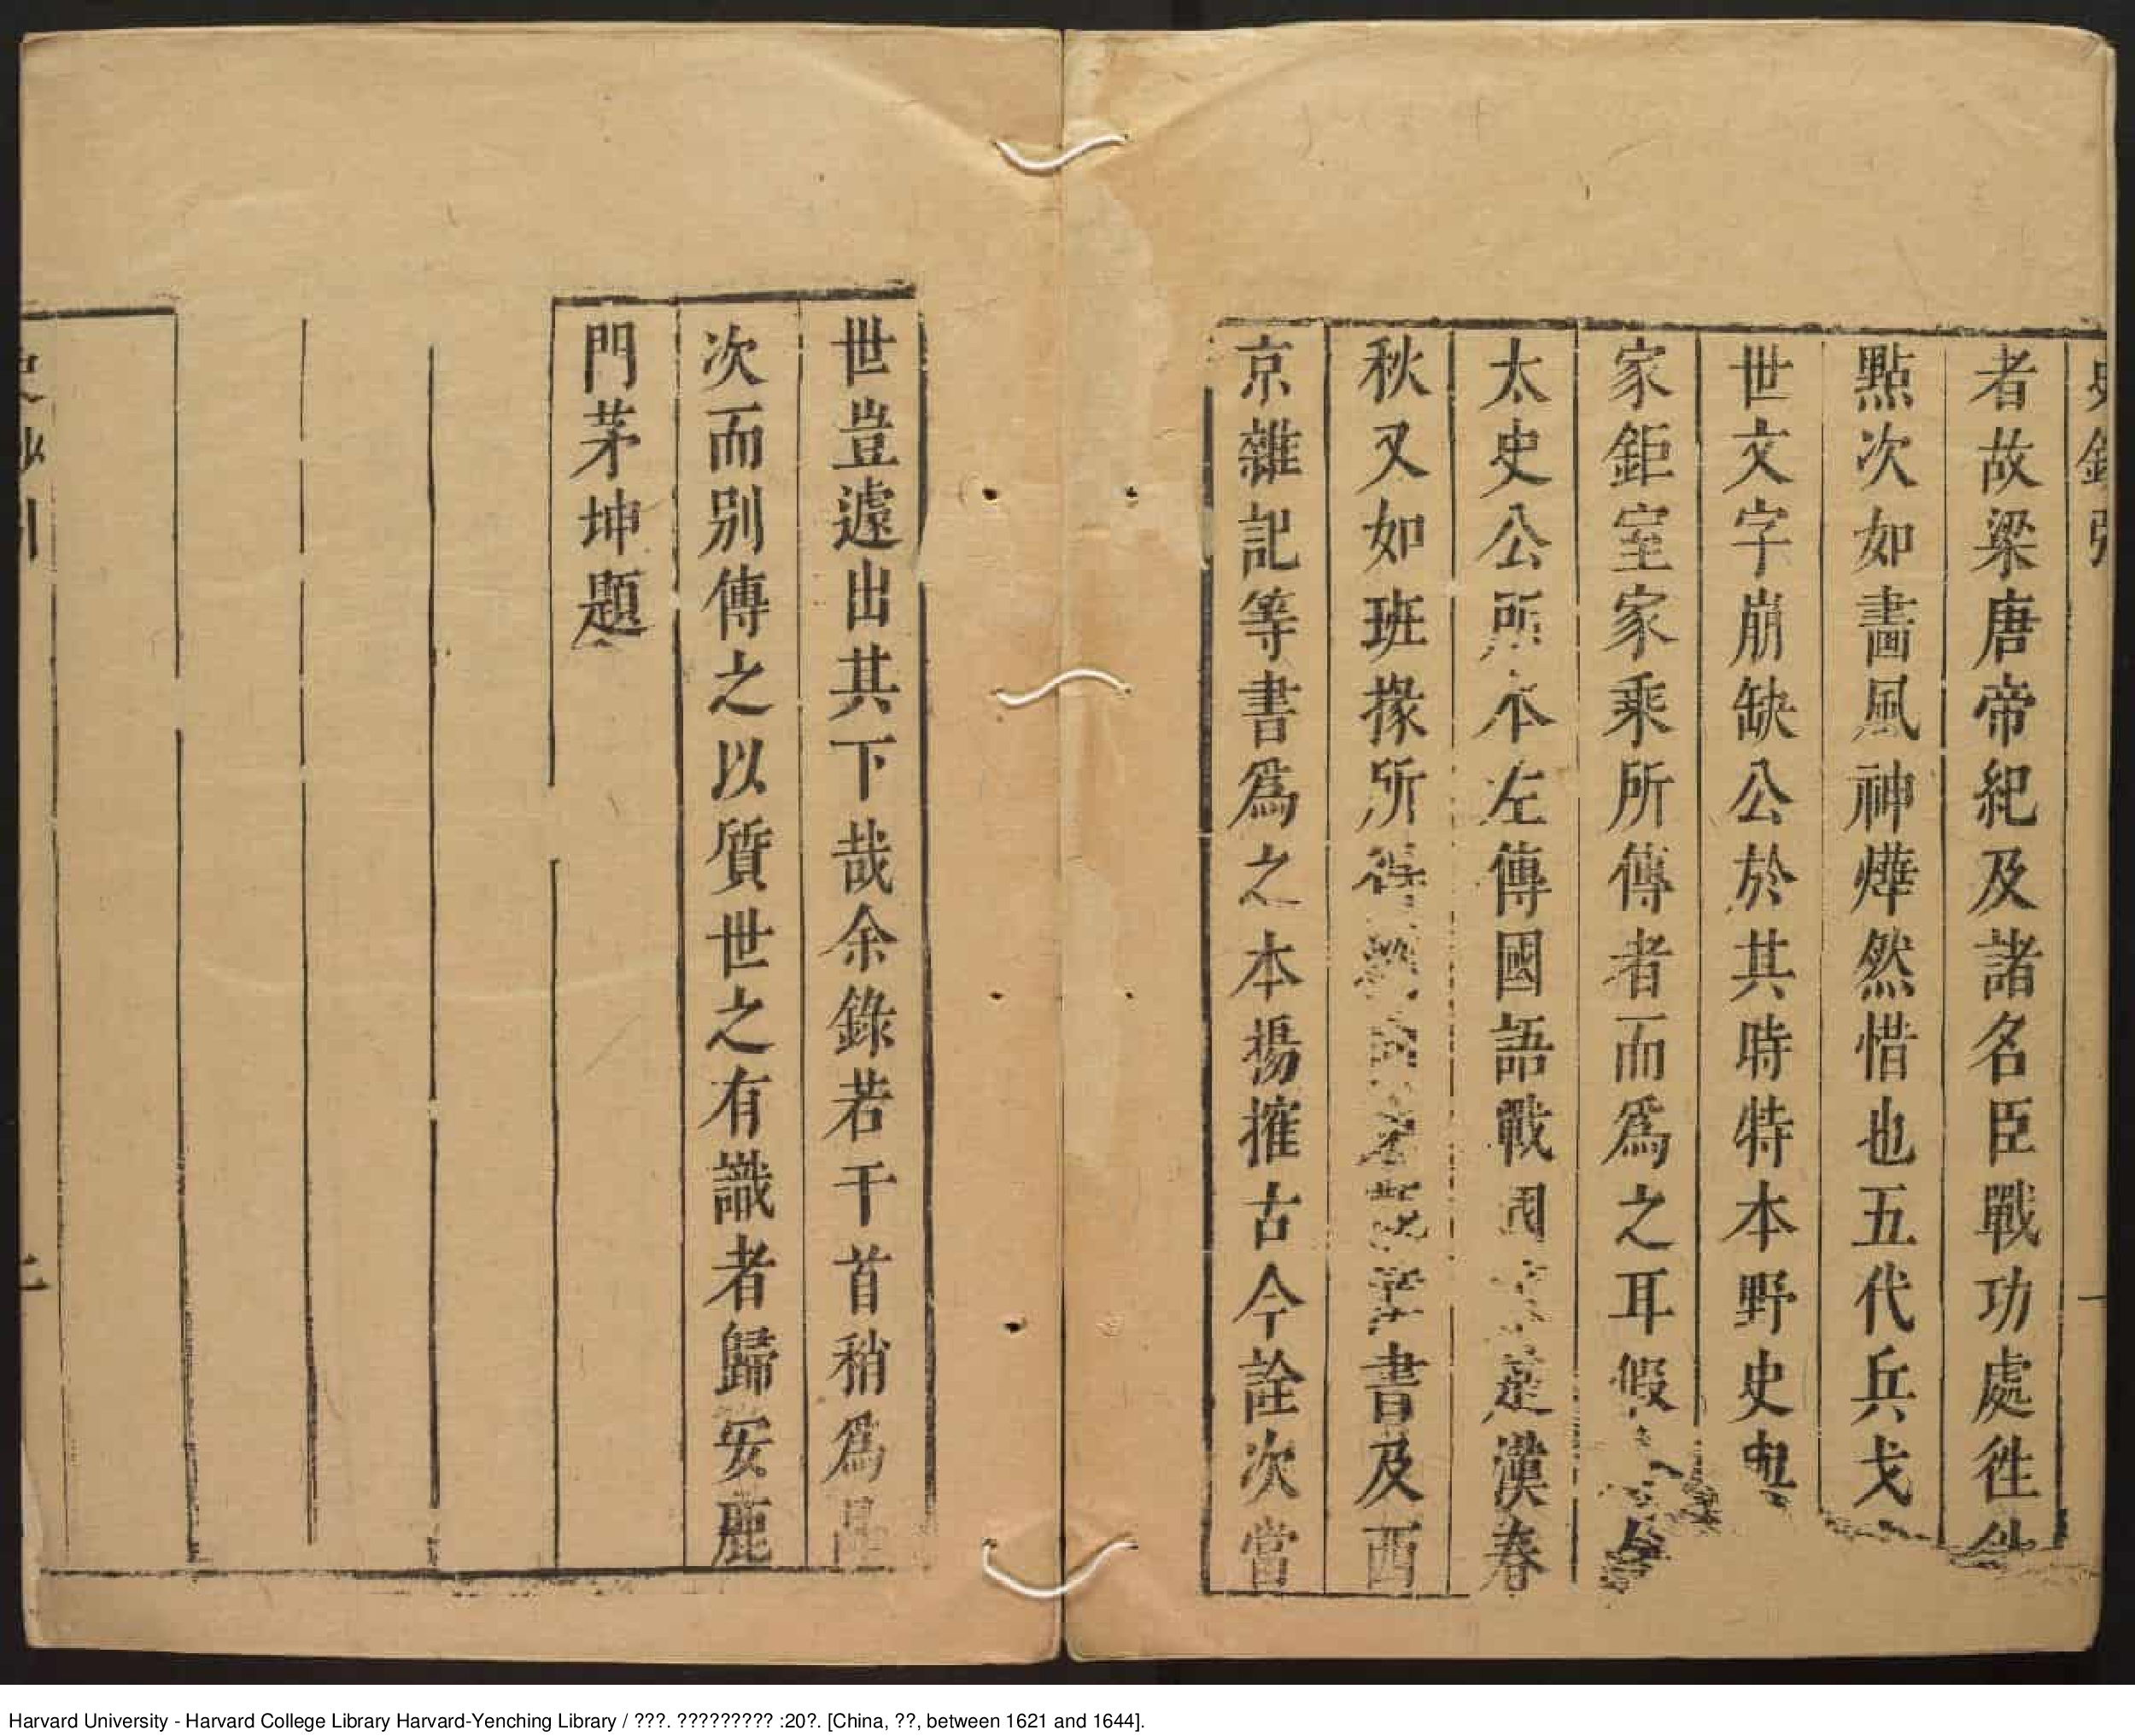 者故梁唐帝紀及諸名臣戰功處徃徃
點次如畵風神燁然惜也五代兵戈
世文字崩缺公於其時特本野史與
家鉅室家乘所傳者而爲之耳假
太史公所本左傳國語戰國楚漢春
秋又如班掾所得劉向書及西
京雜記等書爲之本揚搉古今詮次當
世豈遽出其下哉余錄若干首稍爲
次而别傳之以質世之有識者歸安鹿
門茅坤題
Harvard University - Harvard College Library Harvard-Yenching Library / ???. ????????? :20?. [China, ??, between 1621 and 1644].